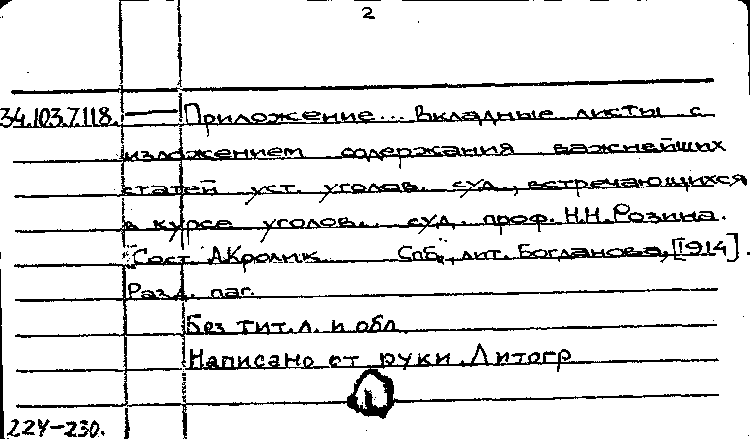 2
34.103.7.118. — Приложение... Вкладные листы с
изложением содержания важнейших
статей уст. уголов. суд., встречающихся
в курсе уголов. суд. проф. Н.Н.Розина.
[Сост. А.Кролик Спб., лит. Богданова, [1914].
Разд. паг.
Без тит.л. и обл.
Написано от руки. Литогр
1
224-230.